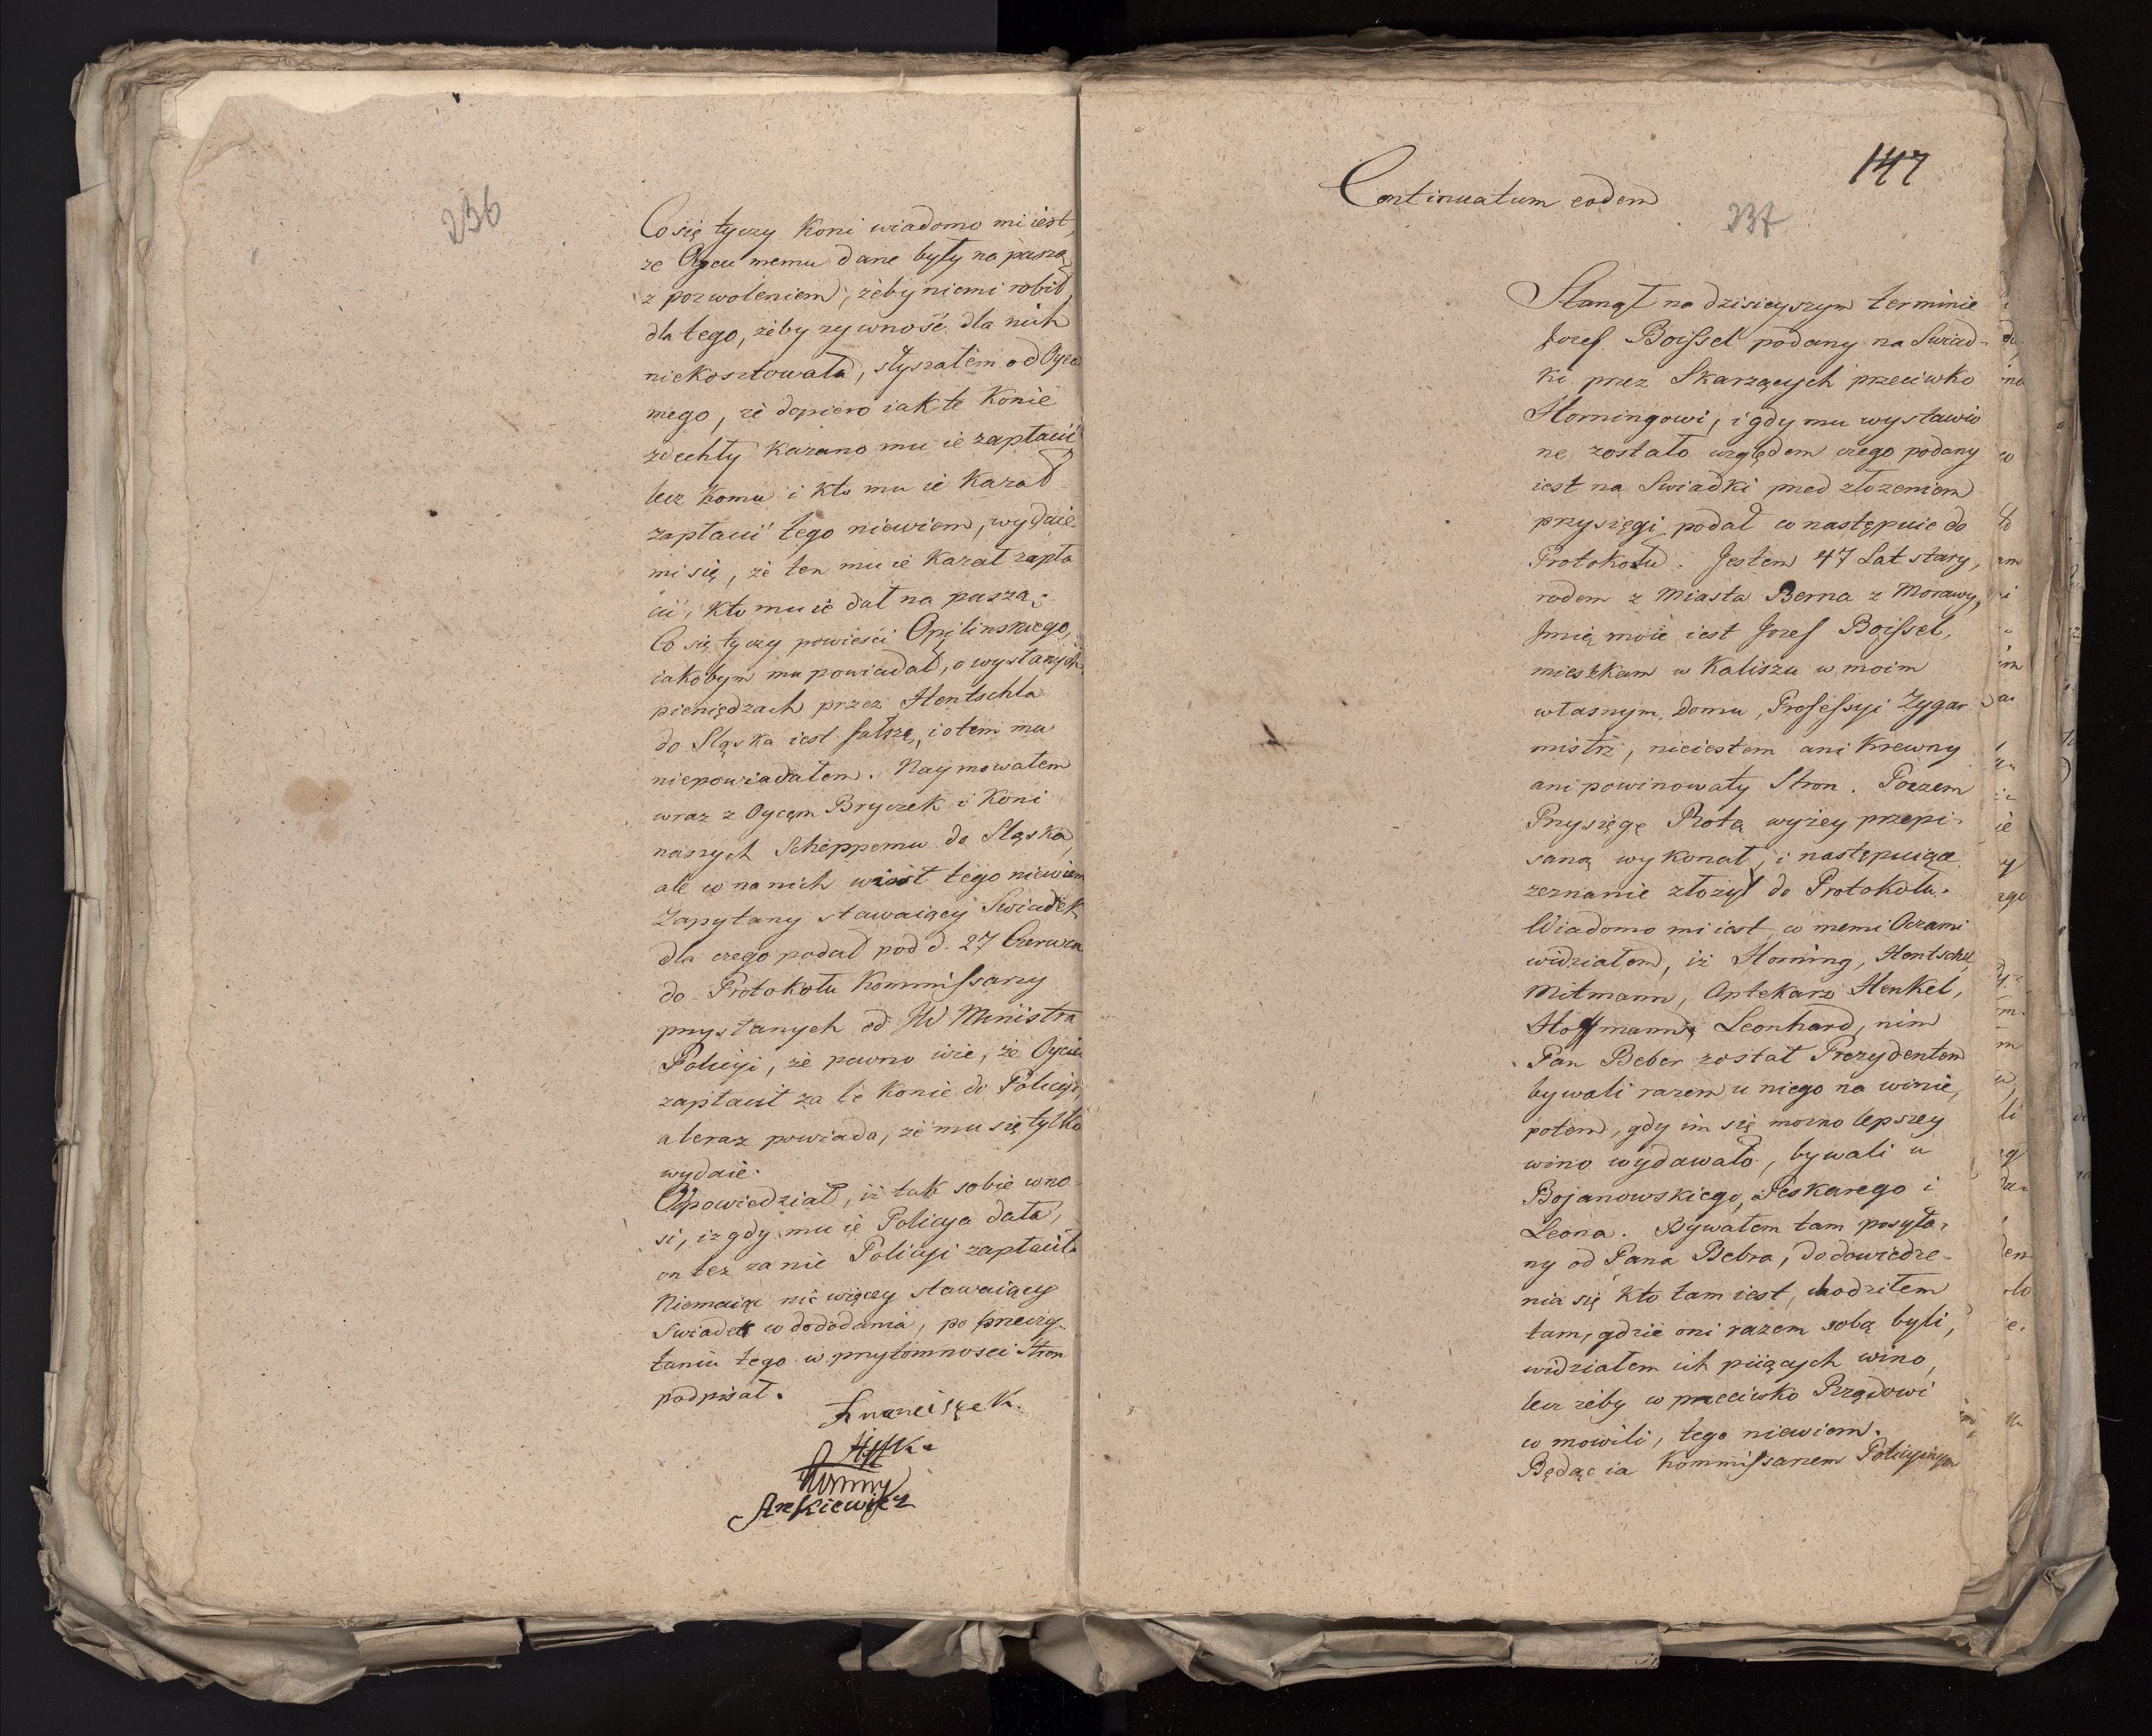 236
Co się tyczy Koni wiadomo mi iest,
ze Oycu memu dane były na paszą
z pozwoleniem, żeby niemi robił
dla tego, żeby zywność dla nich
niekosztowała, słyszałem od Oyca
mego, że dopiero iak te Konie
zdechły kazano mu ie zapłacić
lecz komu i kto mu ie Kazał
zapłacić tego niewiem, wydaie
mi się, że ten mu ie Kazał zapła
cić, kto mu ie dał na paszą.
Co się tyczy powieści Opilinskiego,
iakobym mu powiadał, o wysłanych
pieniędzach przez Hentschla
do Sląska iest fałszę, i o tem mu
niepowiadałem. Naymowałem
wraz z Oycęm Bryczek i Koni
naszych Scheppemu do Sląska,
ale co na nich wiozł tego niewiem
Zapytany stawaiący Swiadek
dla czego podał pod d. 27 Czerwca
do Protokołu Kommissarzy
przysłanych od JW Ministra
Policyi, że pewno wie, że Oyciec
zapłacił za te Konie do Policyi,
a teraz powiada, że mu się tylko
wydaie.
Opowiedział, iż tak sobie wno
si, iz gdy mu ie Policya dała,
on też za nie Policyi zapłacił.
Niemaiąc nic więcey stawaiący
Swiadek co dododania, po przeczy-
taniu tego w przytomnosci Stron
podpisał.
Franciszek.
Arkiewicz
147
Continuatum eodem
237
Stanął na dzisieyszym terminie
Jozef Boissel podany na Swiad-
ki przez Skarzących przeciwko
Horningowi, i gdy mu wystawio
ne zostało względem czego podany
iest na Swiadki przed złozeniem
przysięgi podał co następuie do
Protokołu. Jestem 47 Lat stary,
rodem z Miasta Berna z Morawy,
Jmię moie iest Jozef Boissel,
mieszkam w Kaliszu w moim
własnym domu, Professyi Zygar
mistrz, nieiestem ani Krewny
ani powinowaty Stron. Poczem
Przysięgę Rotą wyżey przepi-
saną wykonał, i następuiące
zeznanie złożył do Protokołu.
Wiadomo mi iest, co memi Oczami
widziałem, iż Horning, Hentschel,
Mitmann, Aptekarz Henkel,
Hoffmann, Leonhard, nim
Pan Beber został Prezydentem
bywali razem u niego na winie,
potem, gdy im się mocno lepszey
wino wydawało, bywali u
Bojanowskiego, Peskarego i
Leona. Bywałem tam posyła-
ny od Pana Bebra, do dowiedze-
nia się kto tam iest, chodziłem
tam, gdzie oni razem sobą byli,
widziałem ich piiących wino,
lecz żeby co przeciwko Rządowi
co mowili, tego niewiem.
Będąc ia Kommissarzem Policyinym